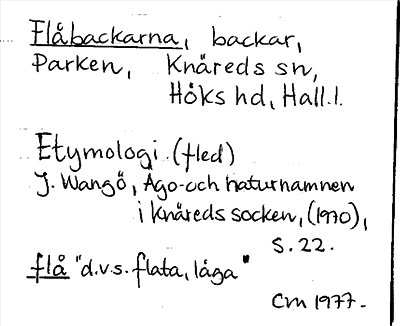 Flåbackarna, backar,
Parken, Knäreds sn,
Höks hd, Hall. l.
Etymologi. (fled)
J. Wangö, Ägo- och naturnamnen
i Knäreds socken, (1970),
s. 22.
flå "d.v.s. flata, låga"
Cm 1977.